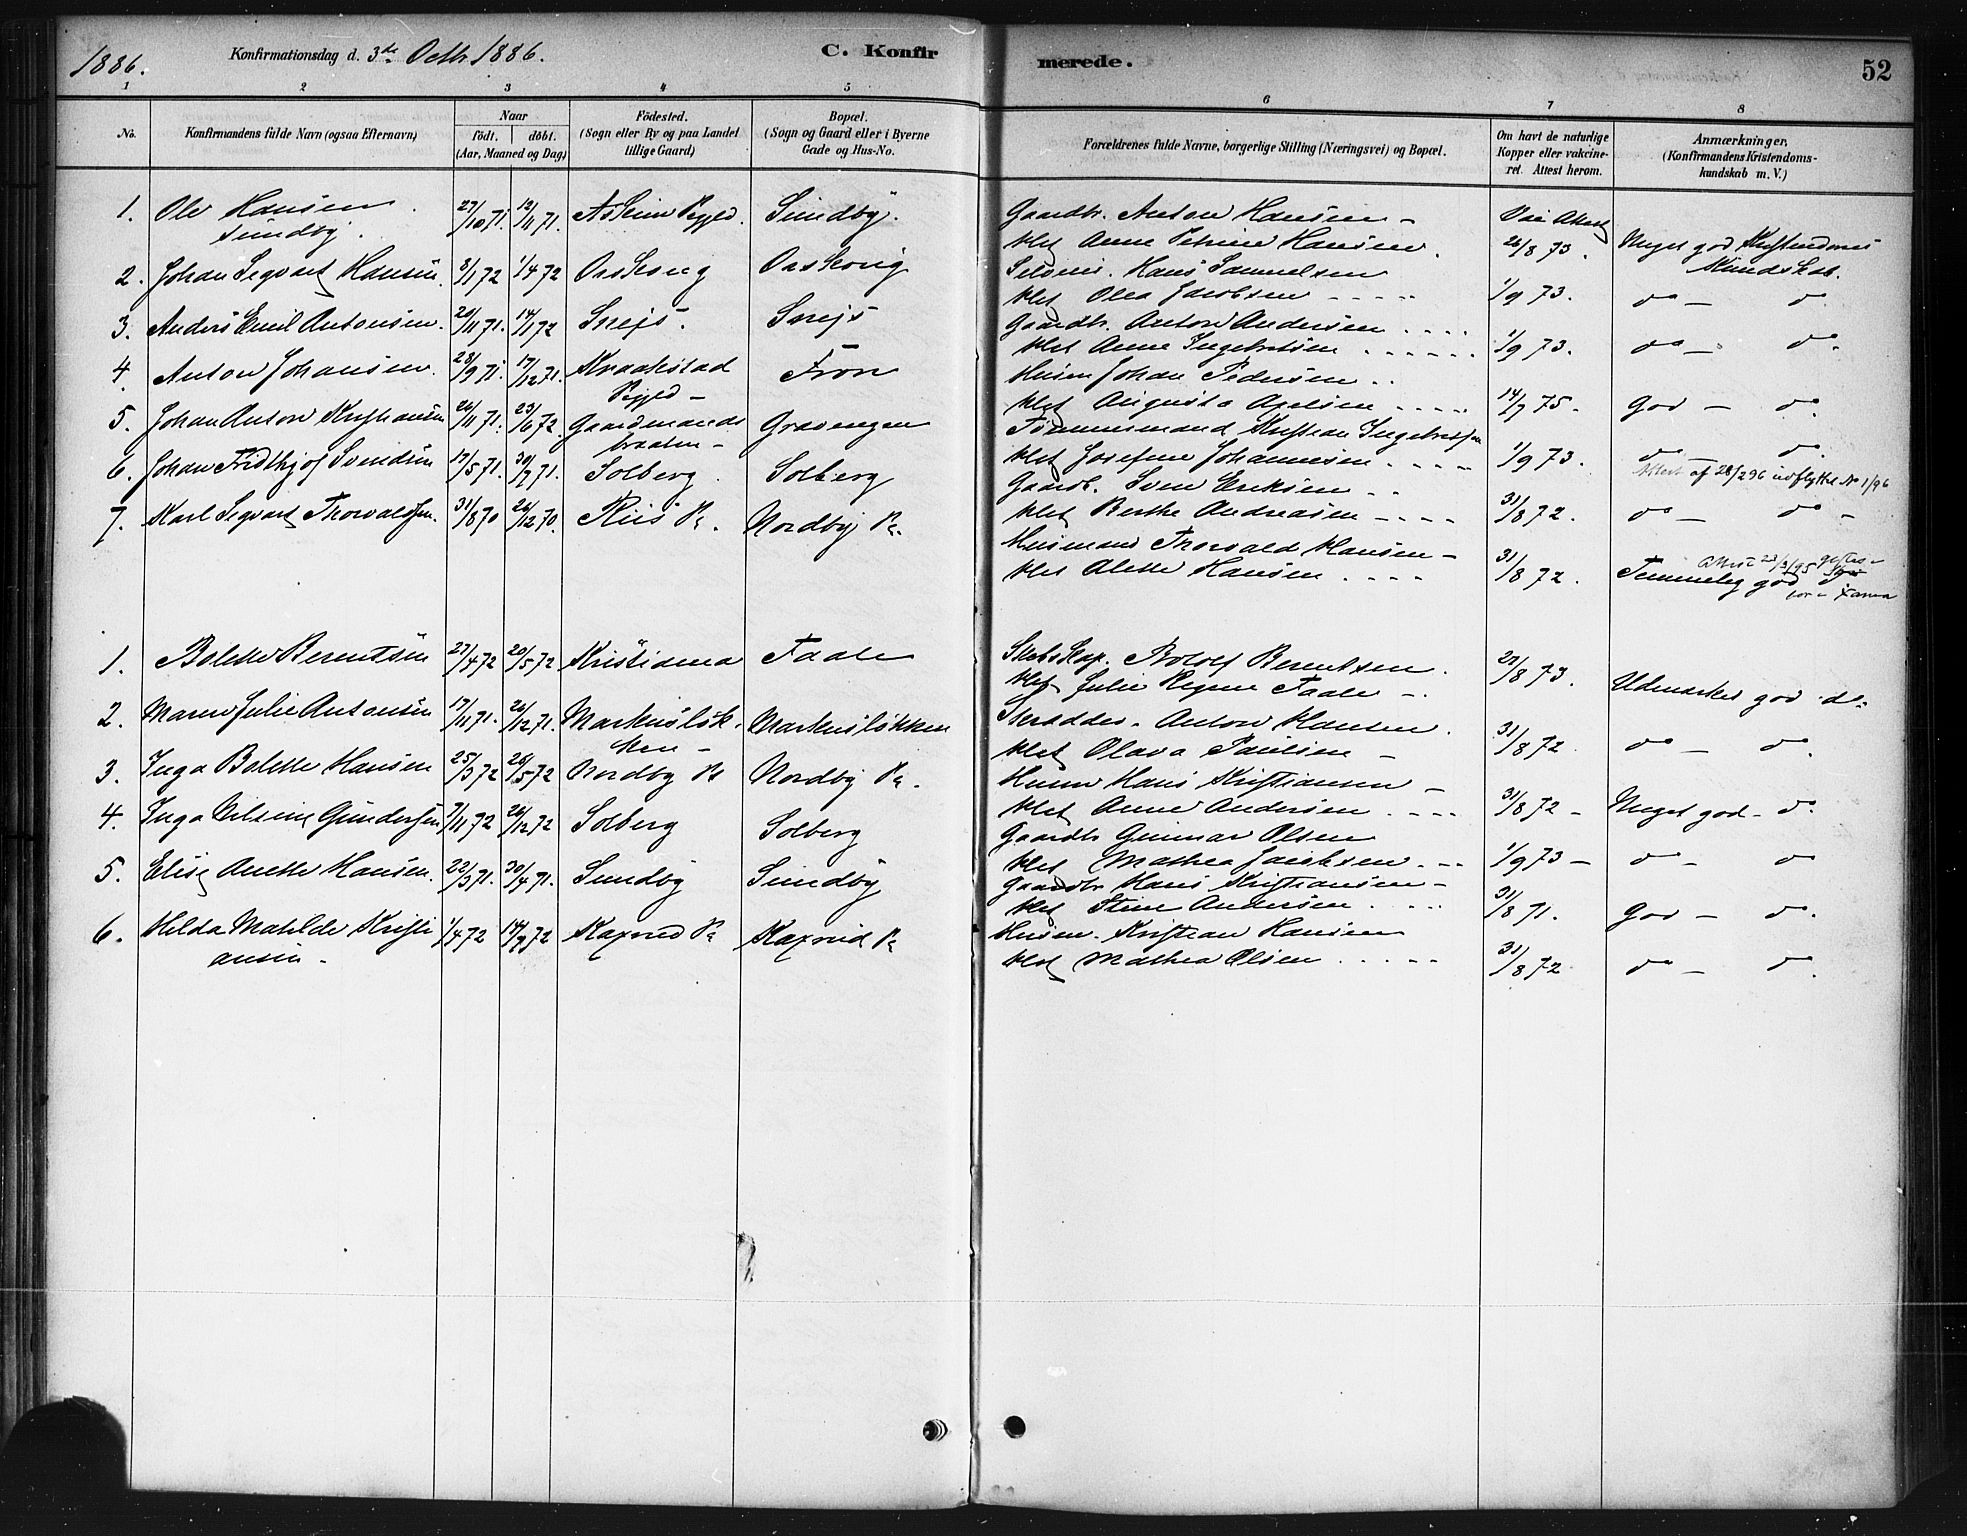 1886.
Konfirmationsdag d. 3de Octbr 1886.
C. Konfir
merede.
52
1 2 3 4 5 6 7 8
No.
Konfirmandens fulde Navn (ogsaa Efternavn)
Naar
födt. döbt.
(Aar, Maaned og Dag)
Födested.
(Sogn eller By og paa Landet
tillige Gaard)
Bopæl.
(Sogn og Gaard eller i Byerne
Gade og Hus-No.
Forældrenes fulde Navne, borgerlige Stilling (Næringsvei) og Bopæl.
Om havt de naturlige
Kopper eller vakcine-
ret. Attest herom.
Anmærkninger,
(Konfirmandens Kristendoms-
kundskab m. V.)
1. Ole Hansen 27/10 71. 12/11 71. Sundby.
Sundby.
Gaardbr. Anton Hansen –
Anne Petrine Hansen. 26/8 73. Meget god Kristendoms
Kundskab.
2. Johan Segvart Hansen. 8/1 72 1/4 72
Hans Samuelsen
Olea Jacobsen - - - - 1/9 73. do – do
3. Anders Emil Antonsen. 20/11 71. 14/1 72 Snejs. Snejs
Gaardbr. Anton Andersen . . . .
Anne Ingebretsen . . . . . . 1/9 73. do – do.
4. Anton Johansen. 28/9 71. 17/12 71. Kraakstad Fron
Husm Johan Pedersen . .
Augusta - - - - 14/7 75. God – do.
5. Johan Anton Kristiansen 26/11 71. 23/6 72. Gaardmands Gravengen
braaten –
Tømmermand Kristian Ingebretsen
Josefine Johannesen . - - - 1/9 73. do – do.
6. Johan Fridthjof Svendsen 17/5 71. 30/7 71. Solberg. Solberg
Attest af 28/2 96 udflyttet No 1/96
Gaardb. Sven Eriksen - -
Berthe Andreasen - - - - 31/8 72. do – do –
7. Karl Segvart Thorvaldsen. 31/8 70 26/12 70. Riis Pl. Nordby Pl.
Husmand Thorvald Hansen –
Alette Hansen . - - - 31/8 72. Temmelig god do
Attest 23/3/95
1. Bolette Berentsen 27/4 72 20/5 72 Kristiania Faale
Rolof Berentsen. 22/8 73. Udmærket god do.
Julie Regine Faale –.
2. Maren Julie Antonsen 17/11 71. 26/12 71. Markusløk- Markusløkken
ken –
Skrædder. Anton Hansen.
Olava Paulsen – 31/8 72. do – do.
3. Inga Bolette Hansen 25/3 72 20/5 72 Nordby Pl Nordby Pl.
Husm Hans Kristiansen –
Anne Andersen . - - - 31/8 72 – Meget god – do.
4. Inga Nilsine Gundersen 7/11 72 26/12 72 Solberg Solberg
Gaardbr Gunnar Olsen
Mathea Jacobsen. - - 1/9 73 – do – do
5. Elise Anette Hansen. 22/3 71. 30/4 71. Sundby Sundby
Gaardbr Hans Kristiansen –
Stine Andersen . - - - 31/8 71. God – do.
6. Hilda Matilde Kristi 1/4 72 14/7 72 Kaxrud Pl Kaxrud Pl
ansen –
Husm. Kristian Hansen
Mathea Olsen . - - - - 31/8 72 do – do.